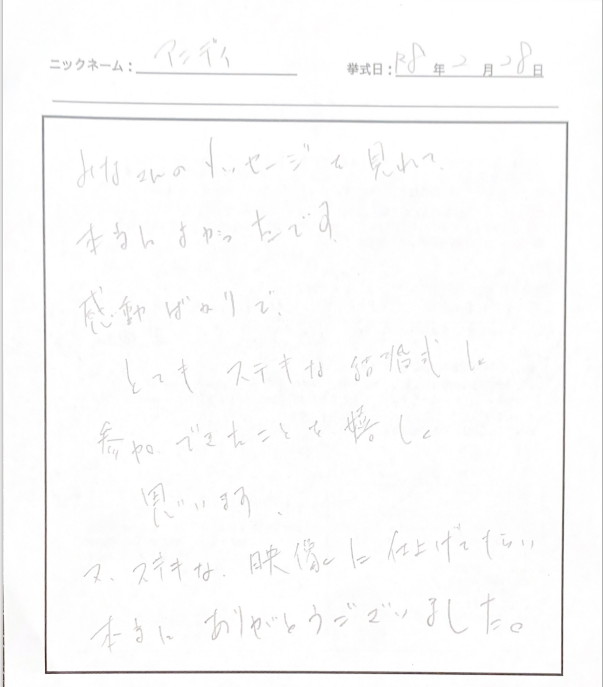 ニックネーム： アンディ 挙式日： R8 年 2 月 28 日
みなさんのメッセージを見れて、
本当によかったです。
感動ばかりで、
とてもステキな結婚式に
参加できたことを嬉しく
思います。
又、ステキな、映像に仕上げてもらい
本当にありがとうございました。